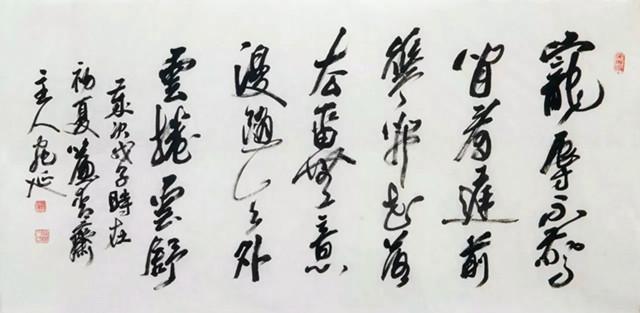 寵辱不驚
閒看庭前
花開花落
去留無意
漫隨天外
雲捲雲舒
歲次戊子時在
初夏齋
主人